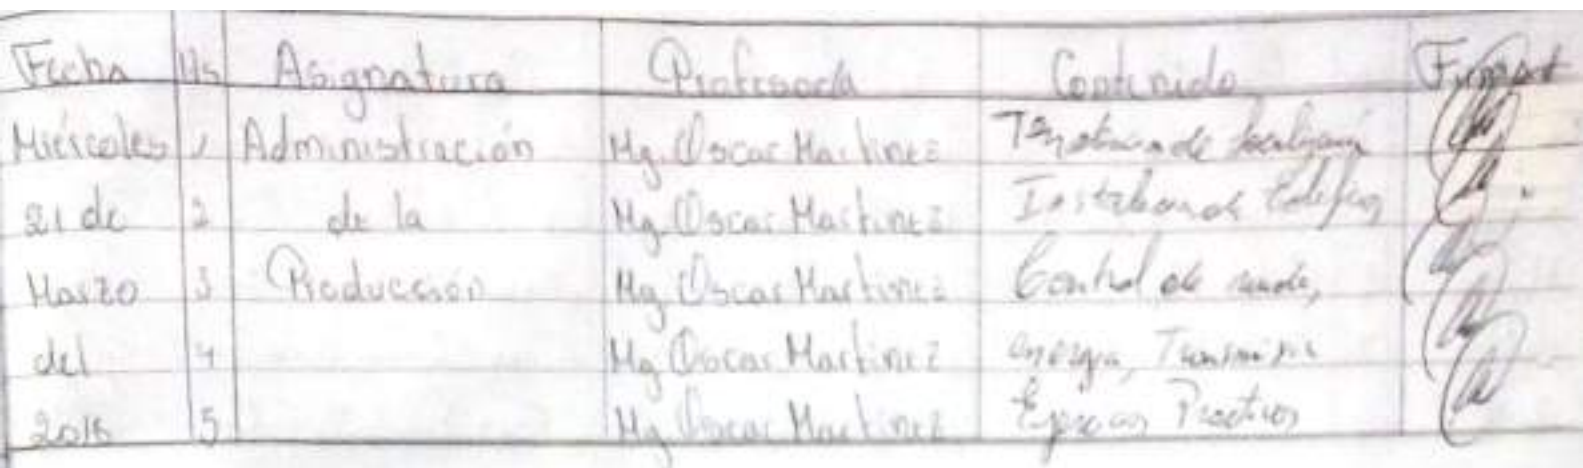 Fecha Hs Asignatura Profesor/a Contenido Firma
Miércoles 1 Administración Mg. Oscar Martinez de
21 de 2 de la Mg. Oscar Martinez
Marzo 3 Producción Mg. Oscar Martinez Control de
del 4 Mg. Oscar Martinez energia,
5 Mg. Oscar Martinez Practicos